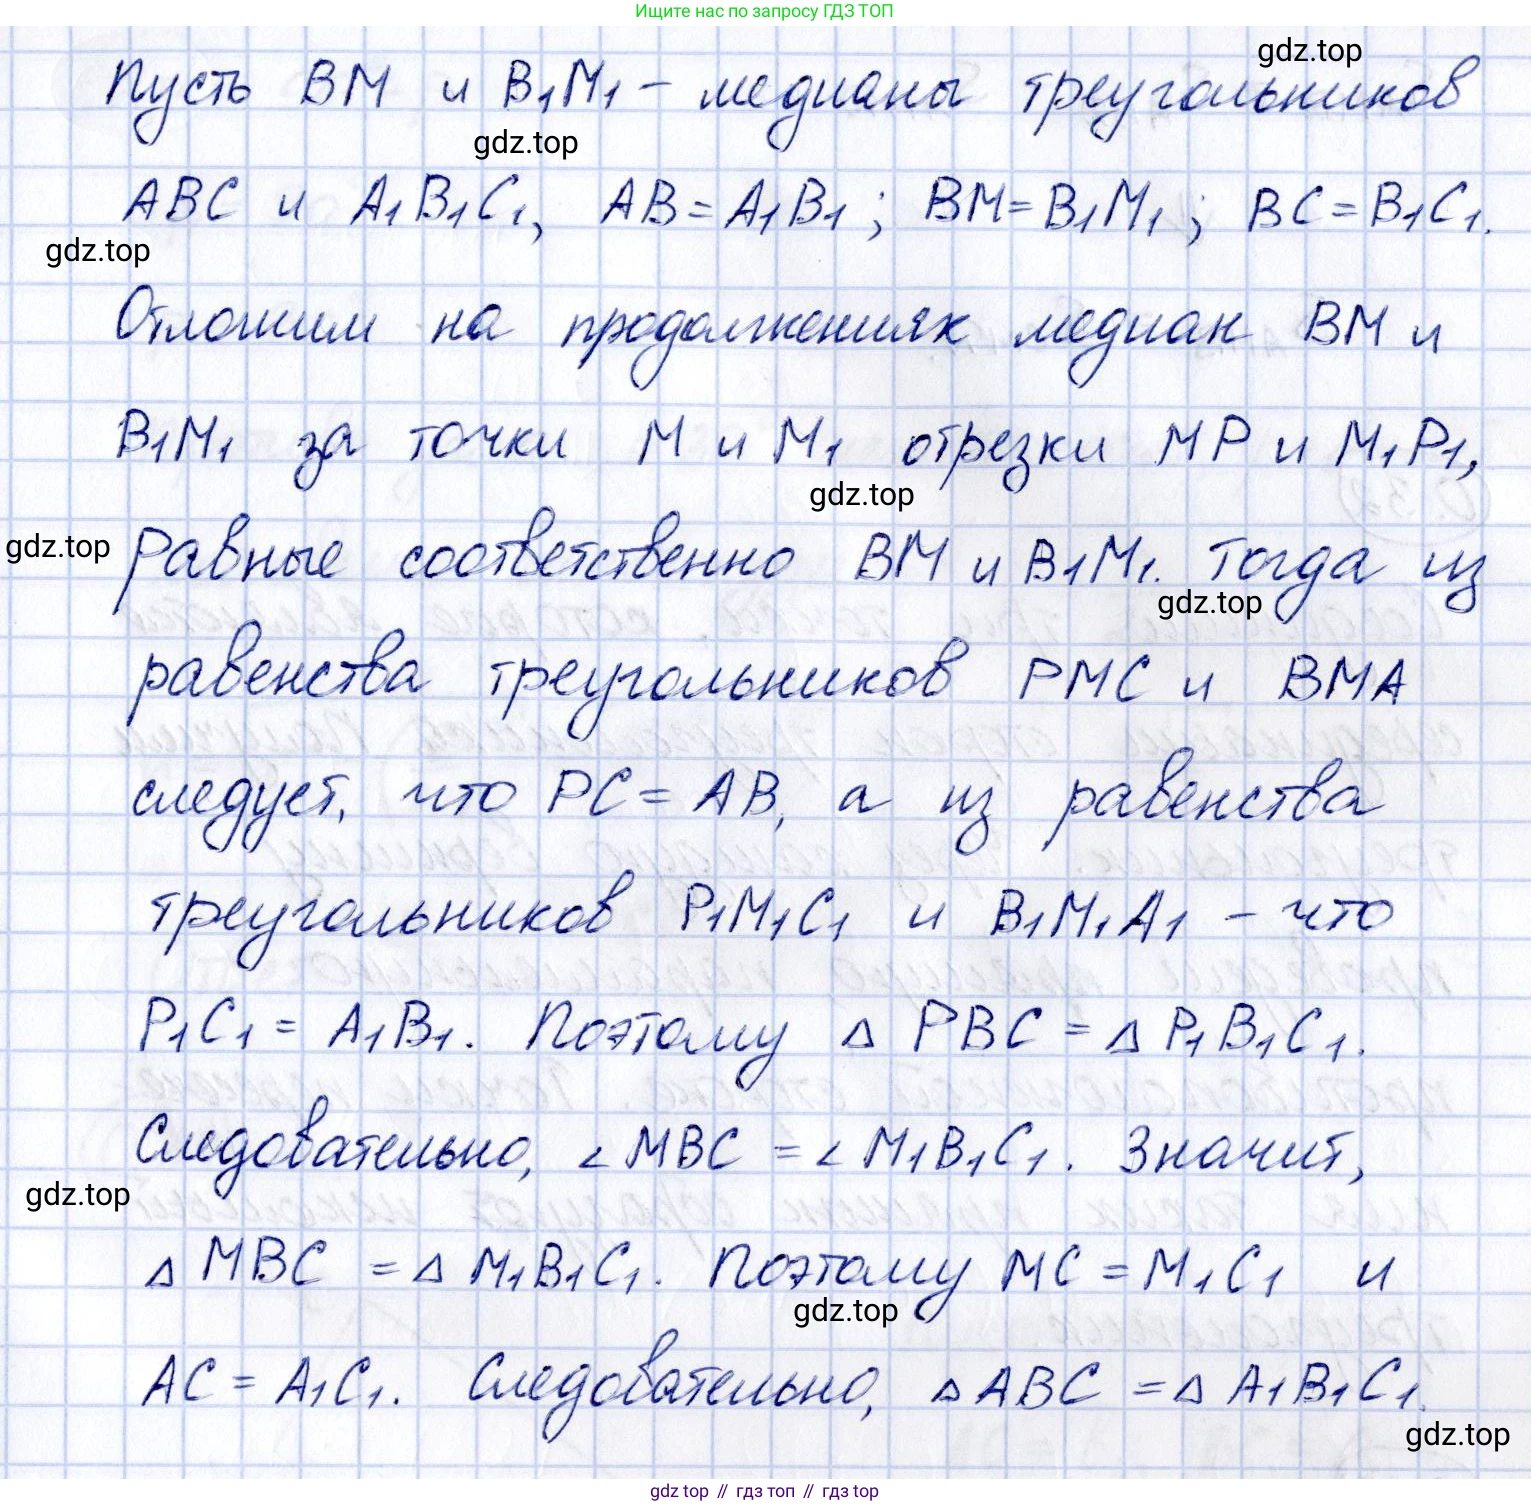 Ищите нас по запросу ГДЗ ТОП
gdz.top
Пусть BM и B₁M₁ – медианы треугольников
gdz.top
ABC и A₁B₁C₁, AB = A₁B₁; BM = B₁M₁; BC = B₁C₁.
gdz.top
Отложим на продолжениях медиан BM и
B₁M₁ за точки M и M₁ отрезки MP и M₁P₁,
gdz.top
gdz.top
равные соответственно BM и B₁M₁. Тогда из
gdz.top
равенства треугольников PMC и BMA
следует, что PC = AB, а из равенства
треугольников P₁M₁C₁ и B₁M₁A₁ – что
P₁C₁ = A₁B₁. Поэтому △ PBC = △ P₁B₁C₁.
Следовательно, ∠ MBC = ∠ M₁B₁C₁. Значит,
gdz.top
△ MBC = △ M₁B₁C₁. Поэтому MC = M₁C₁ и
gdz.top
AC = A₁C₁. Следовательно, △ ABC = △ A₁B₁C₁.
gdz.top
gdz.top // гдз топ // гдз top